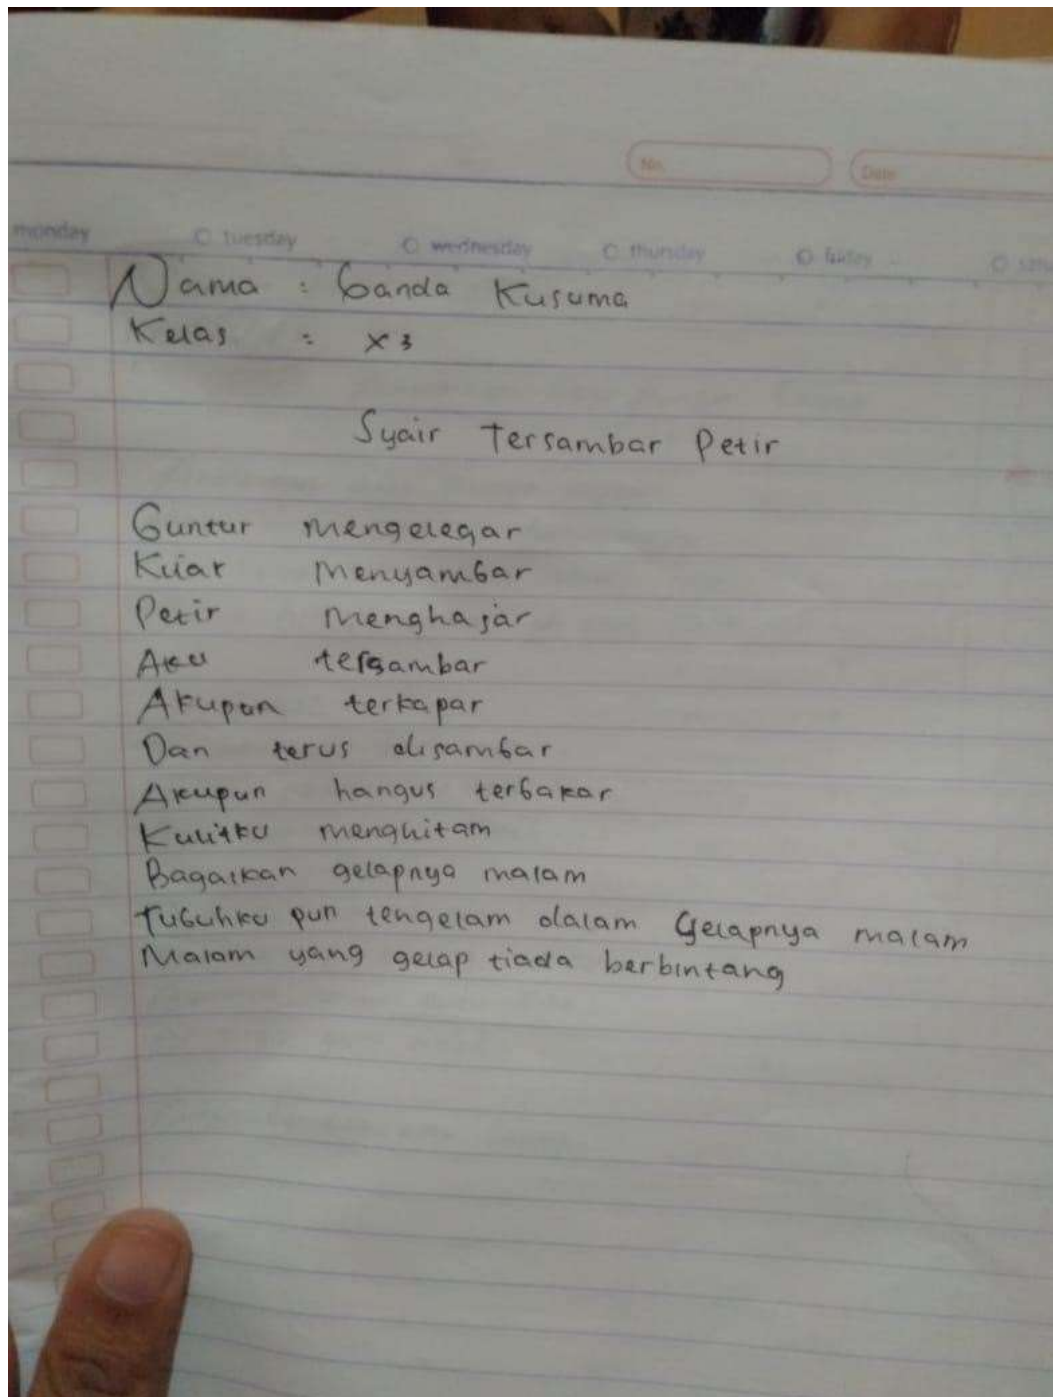 No.
Date
monday tuesday wednesday thursday friday
Nama : Ganda Kusuma
Kelas : X3
Syair Tersambar Petir
Guntur mengelegar
Kilat menyambar
Petir menghajar
Aku tersambar
Akupun terkapar
Dan terus disambar
Akupun hangus terbakar
Kulitku menghitam
Bagaikan gelapnya malam
Tubuhku pun tengelam dalam Gelapnya malam
Malam yang gelap tiada berbintang